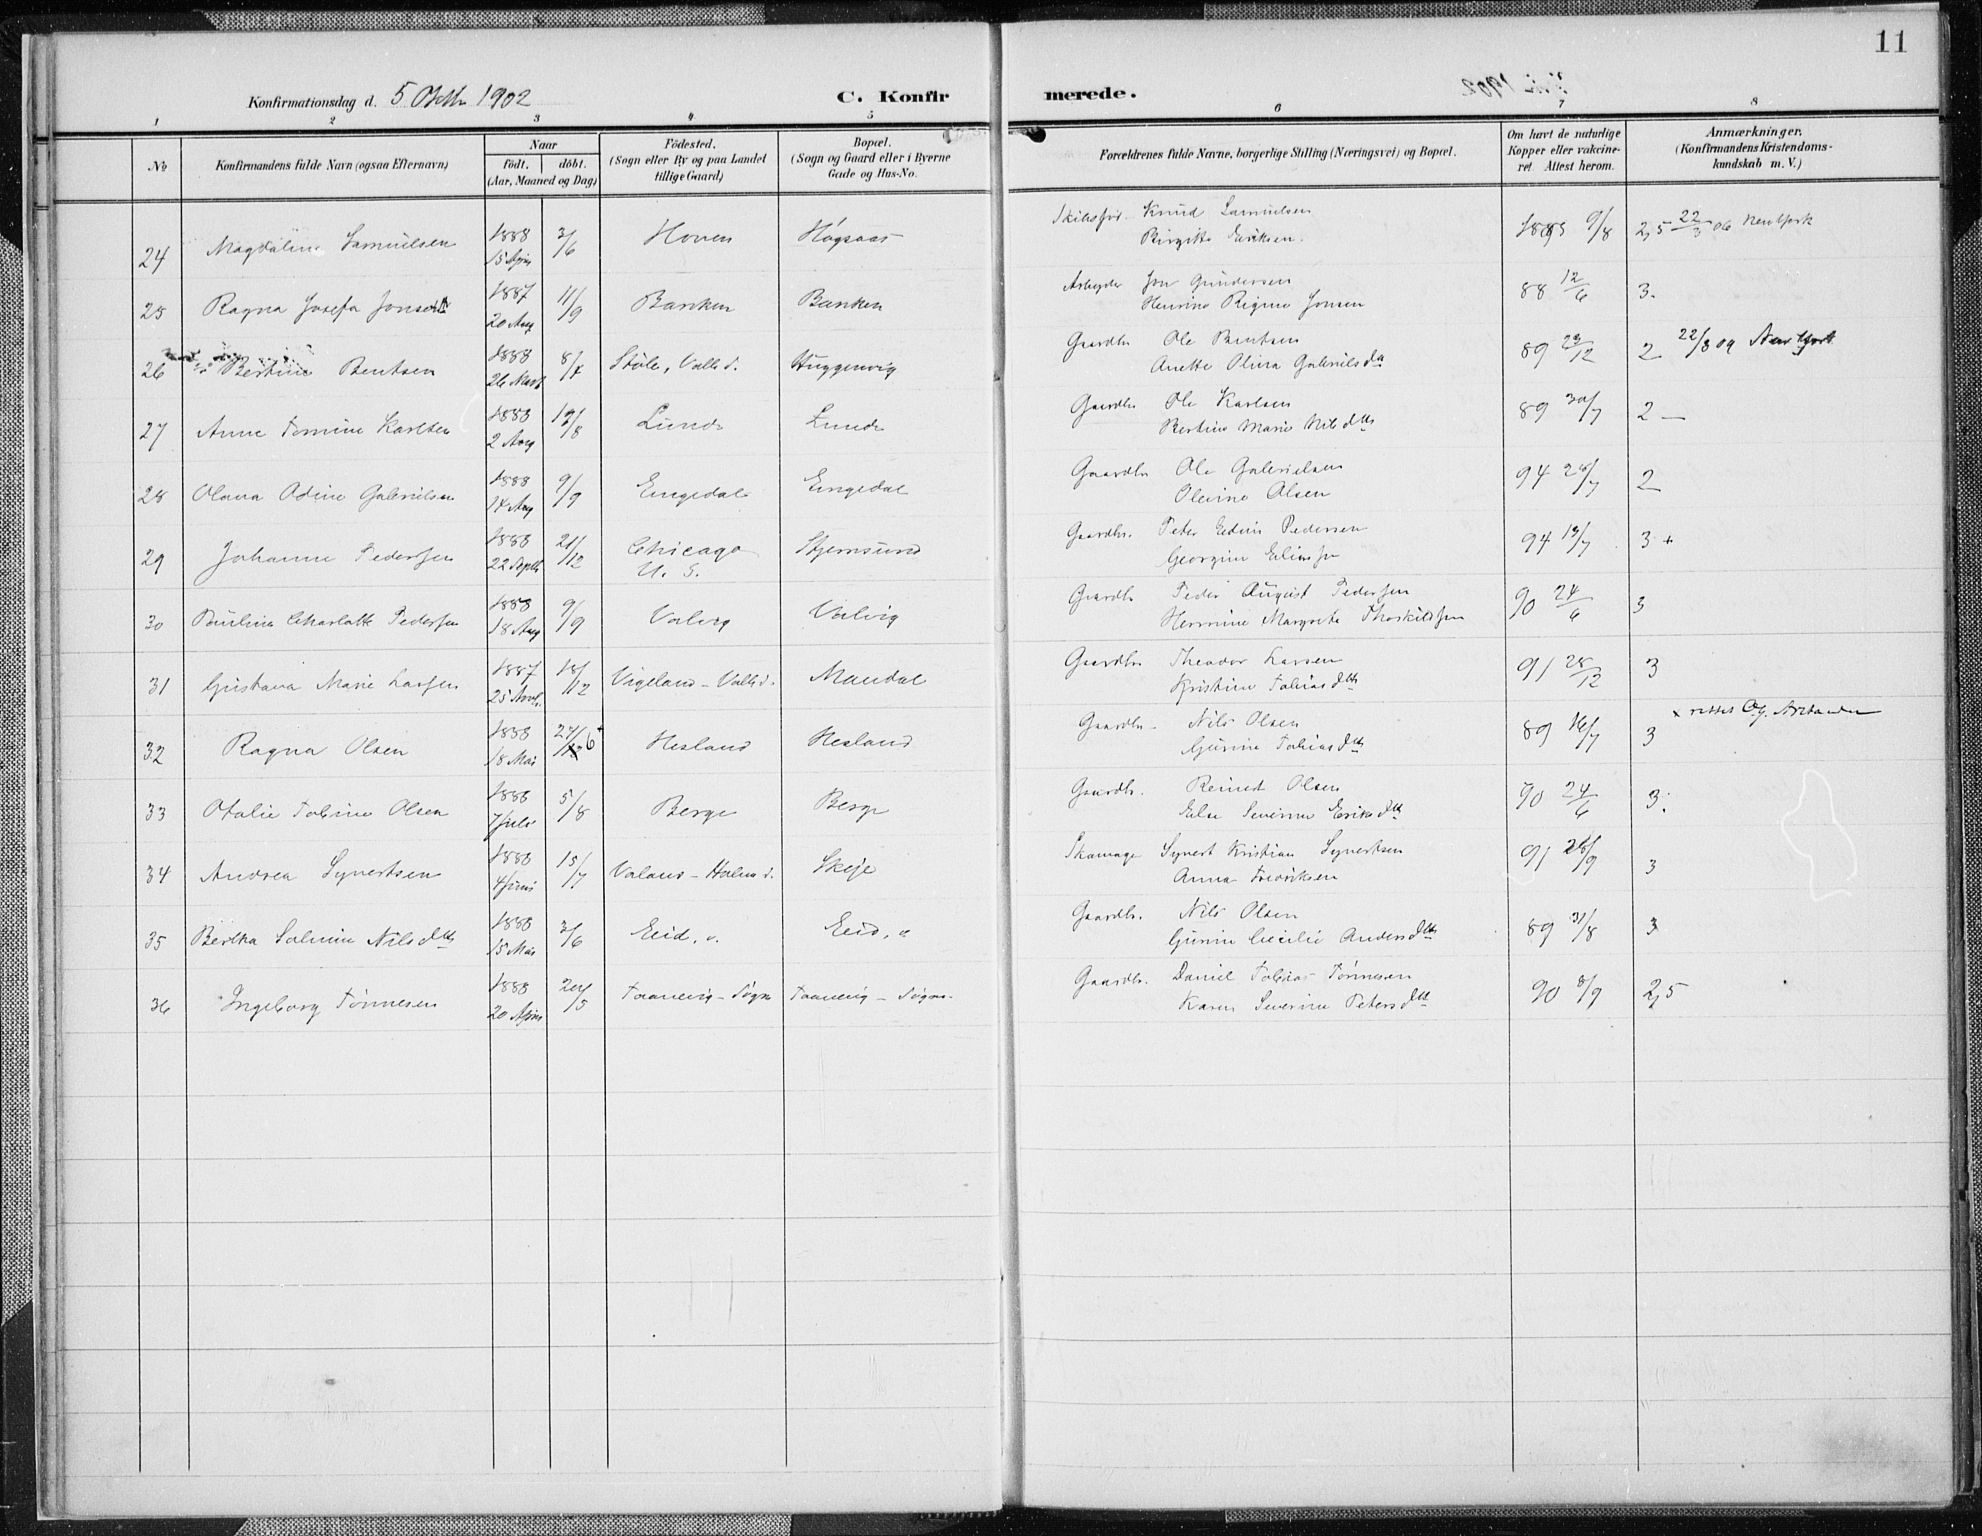 11
Konfirmationsdag d. 5 Oktbr 1902
C. Konfirmerede.
1 2 3 4 5 6 7 8
No
Konfirmandens fulde Navn (ogsaa Efternavn)
Naar
födt. döbt.
(Aar, Maaned og Dag)
Födested.
(Sogn eller By og paa Landet
tillige Gaard)
Bopæl.
(Sogn og Gaard eller i Byerne
Gade og Hus-No.
Forældrenes fulde Navne, borgerlige Stilling (Næringsvei) og Bopæl.
Om havt de naturlige
Kopper eller vakcine-
ret. Attest herom.
Anmærkninger.
(Konfirmandens Kristendoms-
kundskab m. V.)
24 Magdaline Samuelsen 1888 15 April 3/6 Hoven Høgsaas Knud Samuelsen
Birgitte Eriksen. 9/8 2,5 22/3 06 NewYork
25 Ragna Josefa Jonsen 1887 20 Aug 11/9 Banken Banken Arbeyder Jon Gundersen
Henrine Regine Jonsen 88 12/6 3.
26 Bertine Bentsen 1888 26 Mart 8/7 Støle, Valls s. Huggenvig Gaardbr. Ole Bentsen
Anette Olina Gabriels dtr 89 23/12 2 22/3 09 New York
27 Anne Tomine Karlsen 1888 2 Aug 19/8 Lunde Lunde Gaardbr. Ole Karlsen
Bertine Marie Nils dtr 89 30/7 2 —
28 Olava Odine Gabrielsen 1888 14 Aug 9/9 Eingedal Eingedal Gaardbr. Ole Gabrielsen
Olevine Olsen 94 28/7 2
29 Johanne Pedersen 1888 22 Septb 21/12 Chicago
U. S. Stjernsund Gaardbr. Peter Edvin Pedersen
Georgine Eliassen 94 13/7 3 +
30 Pauline Charlotte Pedersen 1888 18 Aug 9/9 Valvig Valvig Gaardb. Peder August Pedersen
Hermine Margrete Thorkildsen 90 24/6 3
31 Gustava Marie Larsen 1887 25 Novb. 18/12 Vigeland - Valls s. Mandal Gaardbr. Theodor Larsen
Kristine Tobias dtr 91 28/12 3
32 Ragna Olsen 1888 18 Mai 24/6 + Hesland Hesland Gaardbr. Nils Olsen
Gunine Tobias dtr 89 16/7 3 x rettet
33 Otalie Tobine Olsen 1888 7 Juli 5/8 Berge Berge Gaardbr. Reinert Olsen
Else Severine Eriks dtr 90 24/6 3.
34 Andrea Synertsen 1888 4 Juni 15/7 Valand - Halms s. Skeje Skomager Synert Kristian Synertsen
Anna Fredriksen 91 26/9 3
35 Bertha Salmine Nils dtr 1888 15 Mai 3/6 Eeid, v. Eeid, v Gaardbr. Nils Olsen
Gunine Cecilie Anders dtr 89 31/8 3
36 Ingeborg Tönnesen 1888 20 April 20/5 Taanevig - Søgne Taanevig - Søgne Gaardbr. Daniel Tobias Tönnesen
Karen Severine Peters dtr 90 8/9 2,5